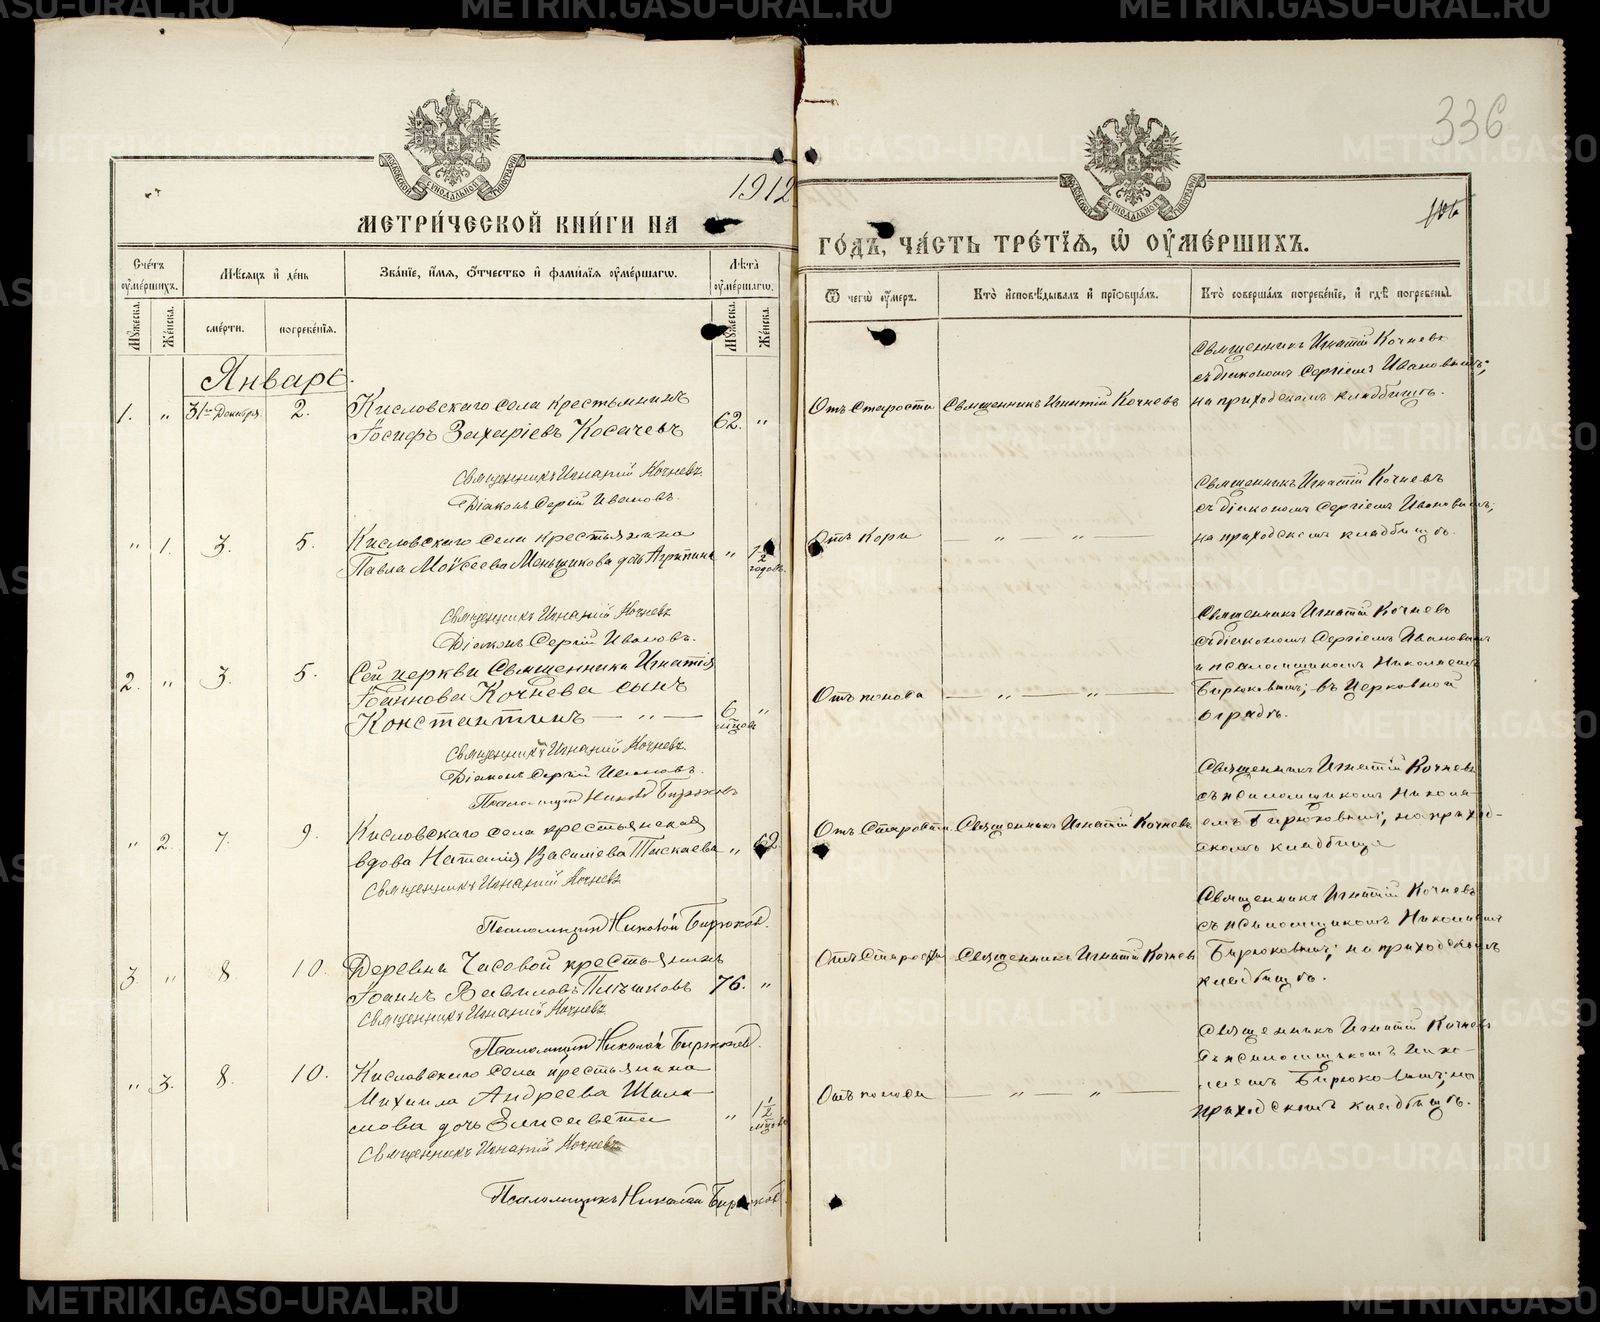 336
МОСКОВСКОЙ СѴНОДАЛЬНОЙ ТИПОГРАФІИ
МОСКОВСКОЙ СѴНОДАЛЬНОЙ ТИПОГРАФІИ
МЕТРИ́ЧЕСКОЙ КНИ́ГИ НА 1912
ГО́ДЪ, ЧА́СТЬ ТРЕ́ТІѦ, Ѡ ОУМЕ́РШИХЪ.
Счетъ оумершихъ.
Мѣсяцъ и день
Званіе, имя, отчество и фамилія оумершагѡ.
Лѣта оумершагѡ.
Ѿ чегѡ оумеръ.
Кто исповѣдывалъ и пріобщалъ.
Кто совершалъ погребеніе, и гдѣ погребены.
Мужеска. Женска. смерти. погребенія. Мужеска. Женска.
Январь.
1. " 31го Декабря 2. Кисловскаго села крестьянинъ
Іосифъ Захаріевъ Косачевъ 62. "
Отъ старости Священникъ Игнатій Кочневъ
Священникъ Игнатій Кочневъ
съ діакономъ Сергіемъ Ивановымъ;
на приходскомъ кладбищѣ.
Священникъ Игнатій Кочневъ.
Діаконъ Сергій Ивановъ.
" 1. 3. 5. Кисловскаго села крестьянина
Павла Моѵсеева Меньшикова дочь Агрипина " 1 1/2 годовъ
Отъ кори — " — " —
Священникъ Игнатій Кочневъ
съ діакономъ Сергіемъ Ивановымъ;
на приходскомъ кладбищѣ.
Священникъ Игнатій Кочневъ
Діаконъ Сергій Ивановъ.
2. " 3. 5. Сей церкви Священника Игнатія
Іоаннова Кочнева сынъ
Константинъ — " — 6 мѣсцовъ "
Отъ поноса — " — " —
Священникъ Игнатій Кочневъ
съ діакономъ Сергіемъ Ивановымъ
и псаломщикомъ Николаемъ
Бирюковымъ; въ церковной
оградѣ.
Священникъ Игнатій Кочневъ.
Діаконъ Сергій Ивановъ.
Псаломщикъ Николай Бирюковъ
" 2. 7. 9. Кисловскаго села крестьянская
вдова Наталія Василіева Тискаева " 62.
Отъ старости Священникъ Игнатій Кочневъ
Священникъ Игнатій Кочневъ
съ псаломщикомъ Никола-
емъ Бирюковымъ; на приход-
скомъ кладбище
Священникъ Игнатій Кочневъ
Псаломщикъ Николай Бирюковъ.
3. " 8 10. Деревни Часовой крестьянинъ
Іоаннъ Вавиловъ Плѣшковъ 76. "
Отъ старости Священникъ Игнатій Кочневъ
Священникъ Игнатій Кочневъ
съ псаломщикомъ Николаемъ
Бирюковымъ; на приходскомъ
кладбищѣ.
Священникъ Игнатій Кочневъ
Псаломщикъ Николай Бирюковъ.
" 3. 8. 10. Кисловскаго села крестьянина
Михаила Андреева Шала-
мова дочь Елисавета " 1 1/2 мѣсцовъ
Отъ поноса — " — " —
Священникъ Игнатій Кочневъ
съ псаломщикомъ Нико-
лаемъ Бирюковымъ; на
приходскомъ кладбищѣ.
Священникъ Игнатій Кочневъ
Псаломщикъ Николай Бирюковъ.
METRIKI.GASO-URAL.RU